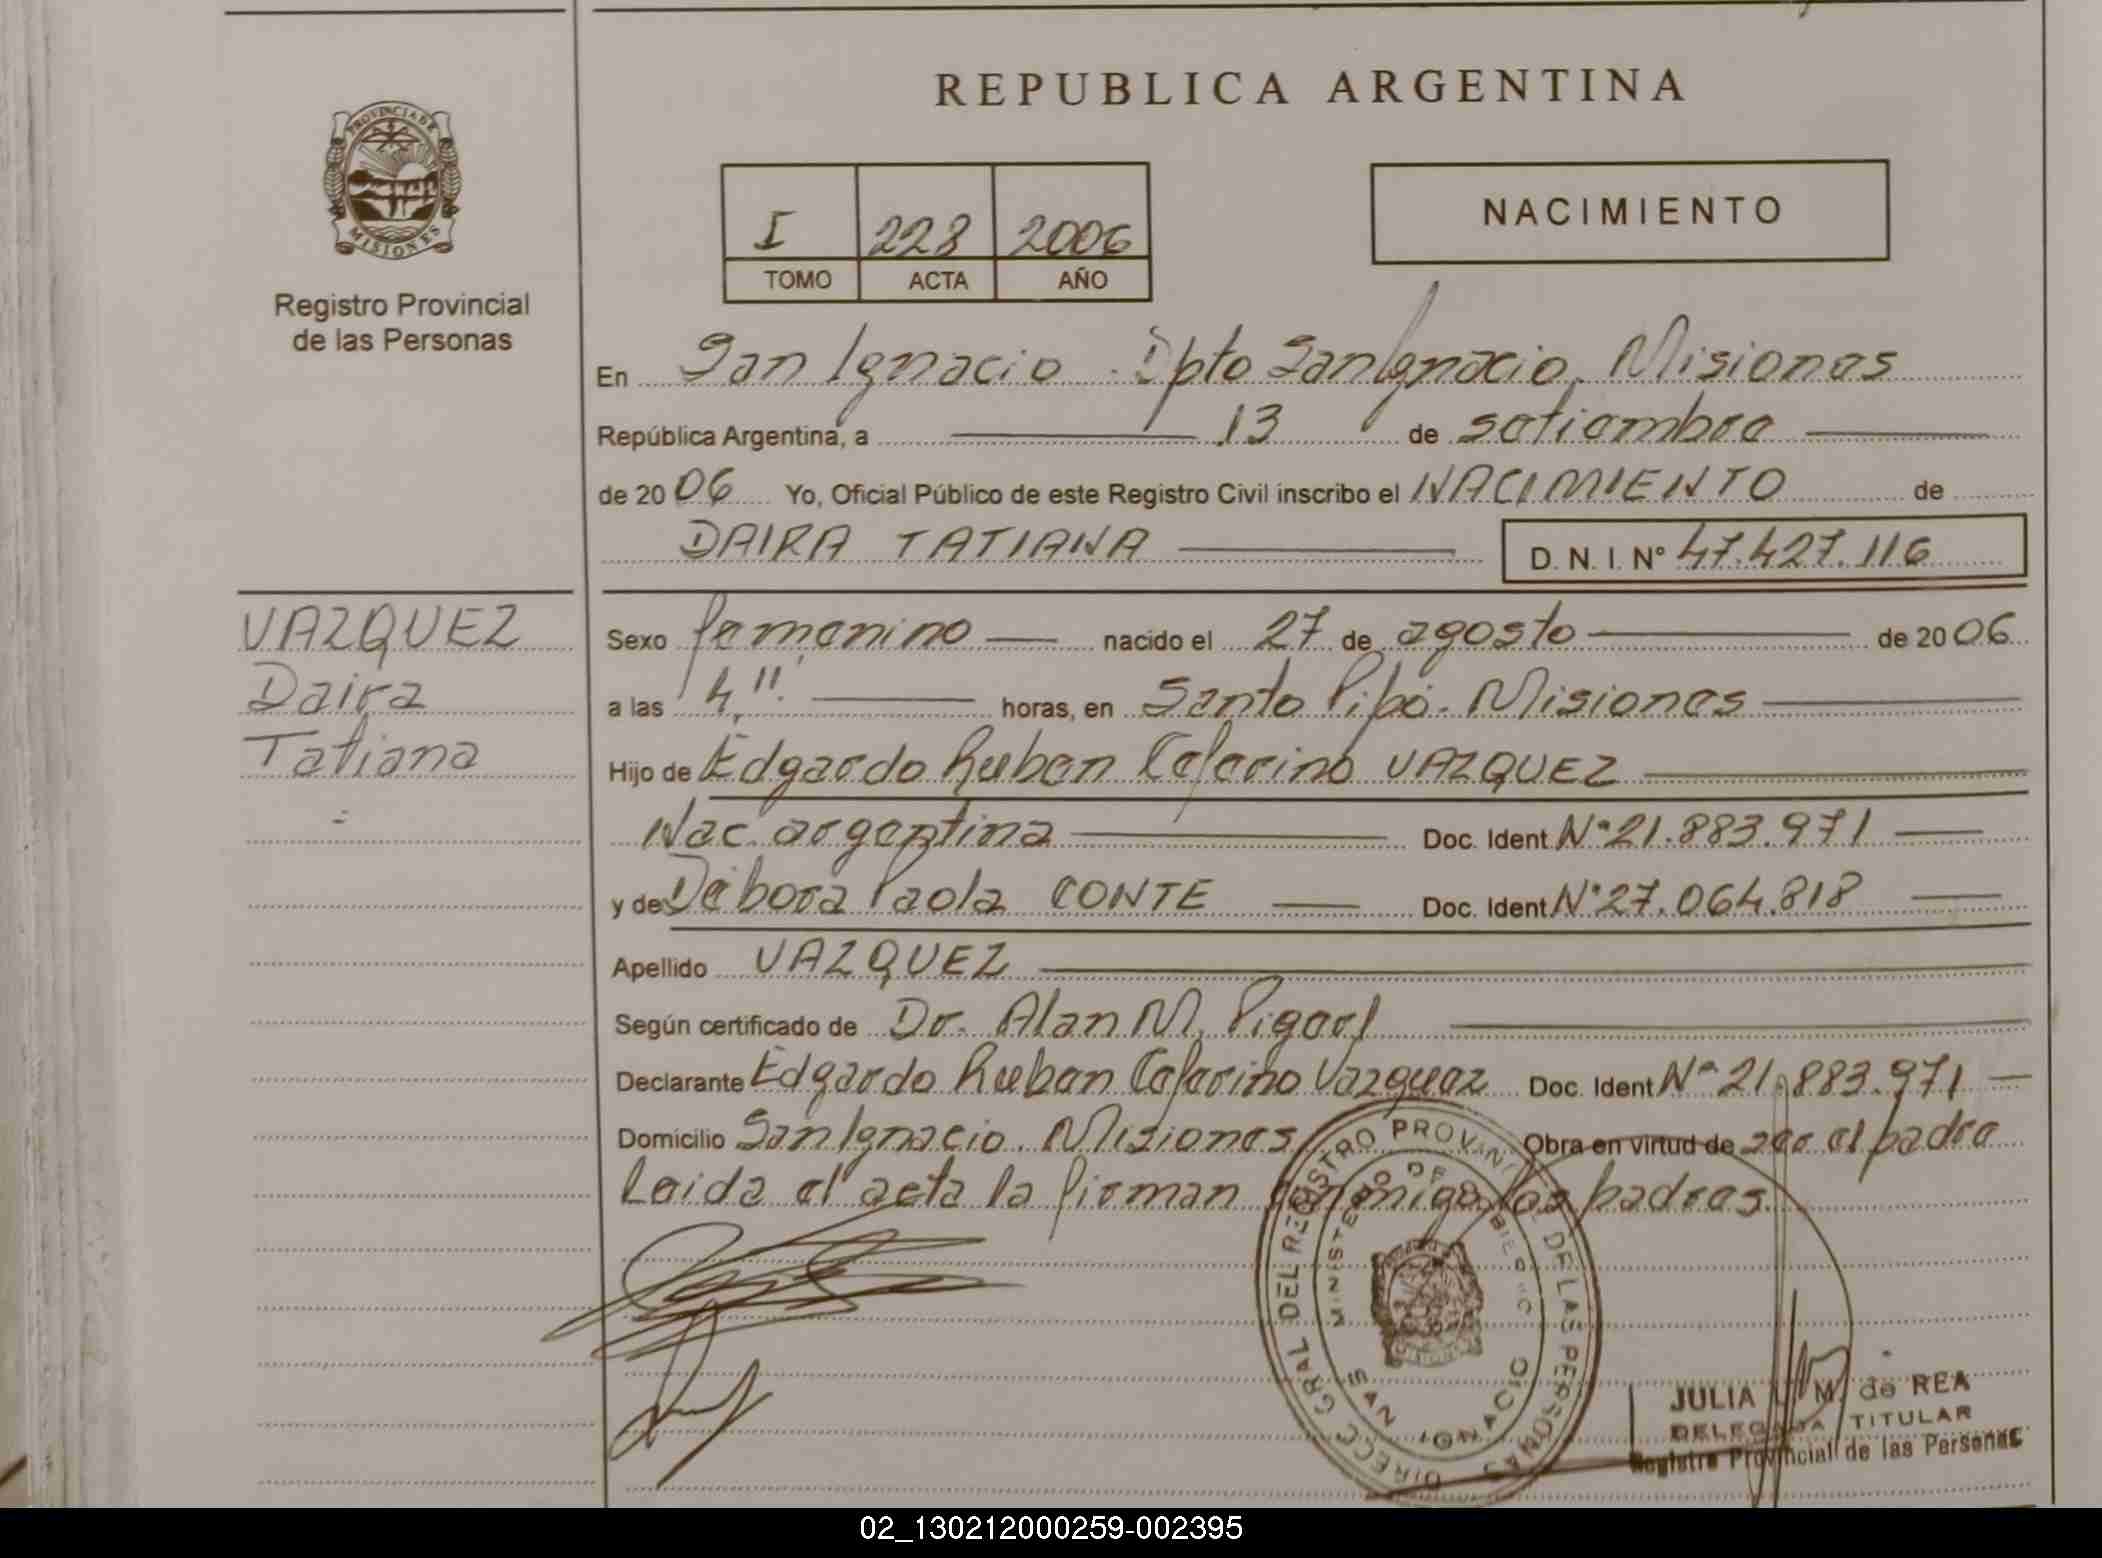 REPUBLICA ARGENTINA
PROVINCIA DE MISIONES
Registro Provincial
de las Personas
I 228 2006
TOMO ACTA AÑO
NACIMIENTO
En San Ignacio. Dpto San Ignacio. Misiones
República Argentina, a 13 de setiembre
de 2006 Yo, Oficial Público de este Registro Civil inscribo el NACIMIENTO de
DAIRA TATIANA D. N. I. Nº 47.427.116
VAZQUEZ
Daira
Tatiana
Sexo femenino nacido el 27 de agosto de 2006
a las 4,11. horas, en Santo Pipó. Misiones
Hijo de Edgardo Ruben Ceferino VAZQUEZ
Nac. argentina Doc. Ident. Nº 21.883.971
y de Débora Paola CONTE Doc. Ident. Nº 27.064.818
Apellido VAZQUEZ
Según certificado de Dr. Alan M.
Declarante Edgardo Ruben Ceferino Vazquez Doc. Ident. Nº 21.883.971
Domicilio San Ignacio. Misiones Obra en virtud de ser el padre
Leida el acta la firman conmigo los padres.
DIRECC GRAL DEL REGISTRO PROVINCIAL DE LAS PERSONAS
MINISTERIO DE GOBIERNO
SAN IGNACIO
JULIA M. de REA
DELEGADA TITULAR
Registro Provincial de las Personas
02_130212000259-002395